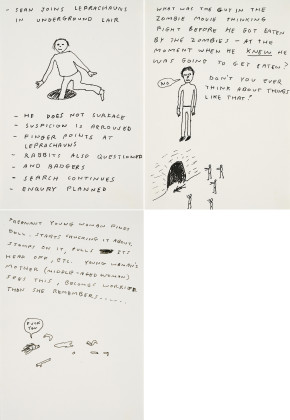 - SEAN JOINS LEPRACHAUNS
IN UNDERGROUND LAIR
- HE DOES NOT SURFACE
- SUSPICION IS AROUSED
- FINGER POINTS AT
LEPRACHAUNS
- RABBITS ALSO QUESTIONED
- AND BADGERS
- SEARCH CONTINUES
- ENQUIRY PLANNED
WHAT WAS THE GUY IN THE
ZOMBIE MOVIE THINKING
RIGHT BEFORE HE GOT EATEN
BY THE ZOMBIES - AT THE
MOMENT WHEN HE KNEW HE
WAS GOING TO GET EATEN?
DON'T YOU EVER
THINK ABOUT THINGS
LIKE THAT?
NO
PREGNANT YOUNG WOMAN FINDS
DOLL. STARTS CHUCKING IT ABOUT,
STAMPS ON IT, PULLS ITS
HEAD OFF, ETC. YOUNG WOMAN'S
MOTHER (MIDDLE-AGED WOMAN)
SEES THIS, BECOMES WORRIED
THEN SHE REMEMBERS.....
FUCK
YOU